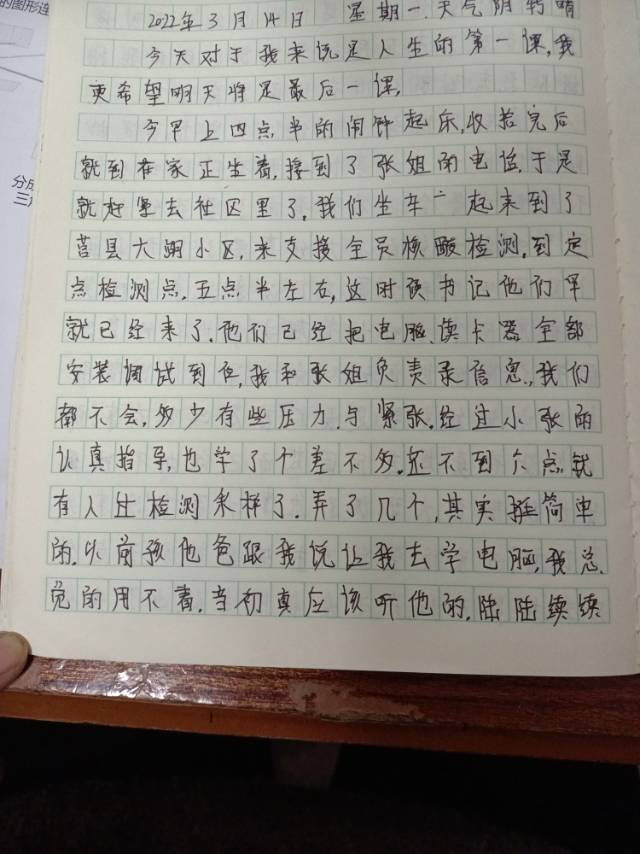 的图形连
分
三
2022年3月14日 星期一.天气阴转晴
今天对于我来说是人生的第一课,我
更希望明天将是最后一课,
今早上四点半的闹钟起床,收拾完后
就到在家正坐着,接到了张姐的电话,于是
就赶紧去社区里了,我们坐车一起来到了
莒县大湖小区,来支援全员核酸检测,到定
点检测点,五点半左右,这时张书记他们早
就已经来了.他们已经把电脑.读卡器全部
安装调试到位,我和张姐负责录信息,我们
都不会,多少有些压力.与紧张.经过小张的
认真指导,也学了个差不多.还不到六点就
有人让检测采样了.弄了几个,其实挺简单
的.以前孩他爸跟我说让我去学电脑,我总.
觉的用不着.当初真应该听他的.陆陆续续